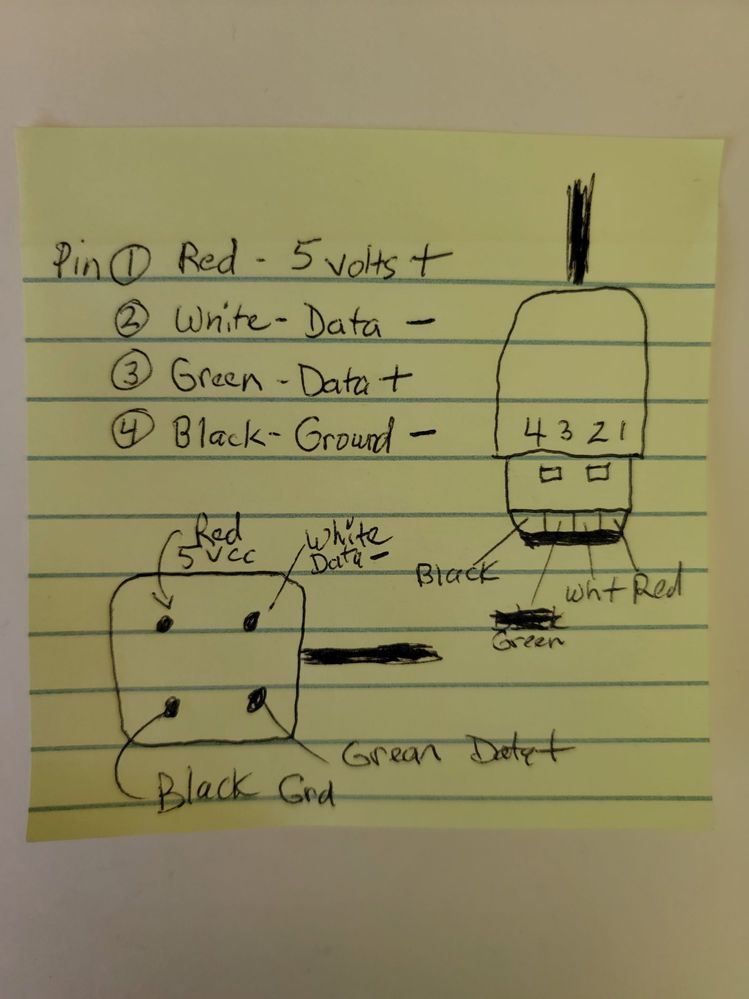 Pin ① Red - 5 volts +
② White - Data -
③ Green - Data +
④ Black - Ground -
4 3 2 1
Black
Green
Wht
Red
Red
5 vcc
White
Data -
Grean Data +
Black Grd